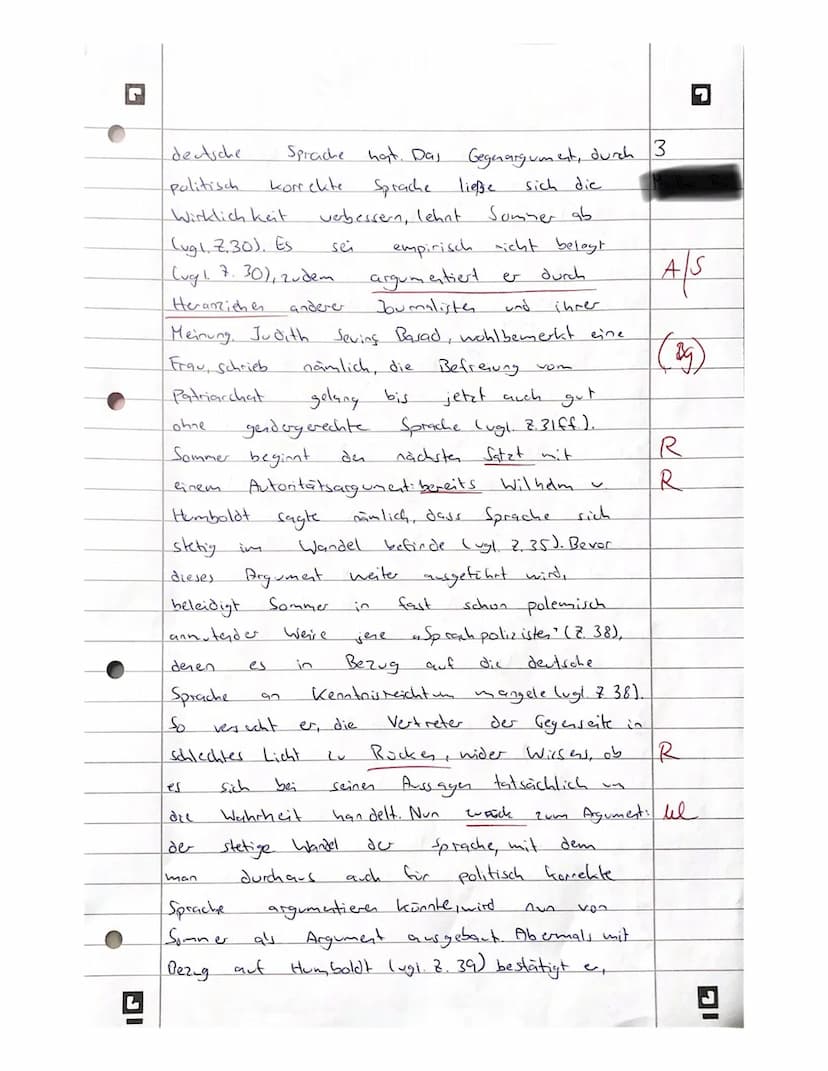 deutsche Sprache hat. Das Gegenargument, durch 3
politisch korrekte Sprache ließe sich die
Wirklichkeit verbessern, lehnt Sommer ab
(vgl. Z. 30). Es sei empirisch nicht belegt
(vgl. Z. 30), zudem argumentiert er durch A/S
Heranziehen anderer Journalisten und ihrer
Meinung. Judith Sevinç Basad, wohlbemerkt eine
Frau, schrieb nämlich, die Befreiung vom (Bg)
Patriarchat gelang bis jetzt auch gut
ohne gendergerechte Sprache (vgl. Z. 31ff.).
Sommer beginnt den nächsten Satzt mit R
einem Autoritätsargument: bereits Wilhelm v. R
Humboldt sagte nämlich, dass Sprache sich
stetig im Wandel befinde (vgl. Z. 35). Bevor
dieses Argument weiter ausgeführt wird,
beleidigt Sommer in fast schon polemisch
anmutender Weise jene „Sprachpolizisten" (Z. 38),
denen es in Bezug auf die deutsche
Sprache an Kenntnisreichtum mangele (vgl. Z 38).
So versucht er, die Vertreter der Gegenseite in
schlechtes Licht zu Rücken, wider Wissens, ob R
es sich bei seinen Aussagen tatsächlich um
die Wahrheit handelt. Nun zurück zum Argument:
der stetige Wandel der Sprache, mit dem
man durchaus auch für politisch korrekte
Sprache argumentieren könnte, wird nun von
Sommer als Argument ausgebaut. Abermals mit
Bezug auf Humboldt (vgl. Z. 39) bestätigt er,